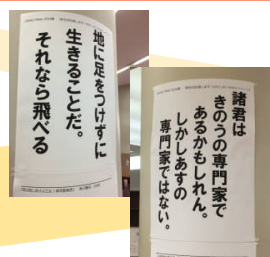 地に足をつけずに
生きることだ。
それなら飛べる
諸君は
きのうの専門家で
あるかもしれん。
しかしあすの
専門家ではない。